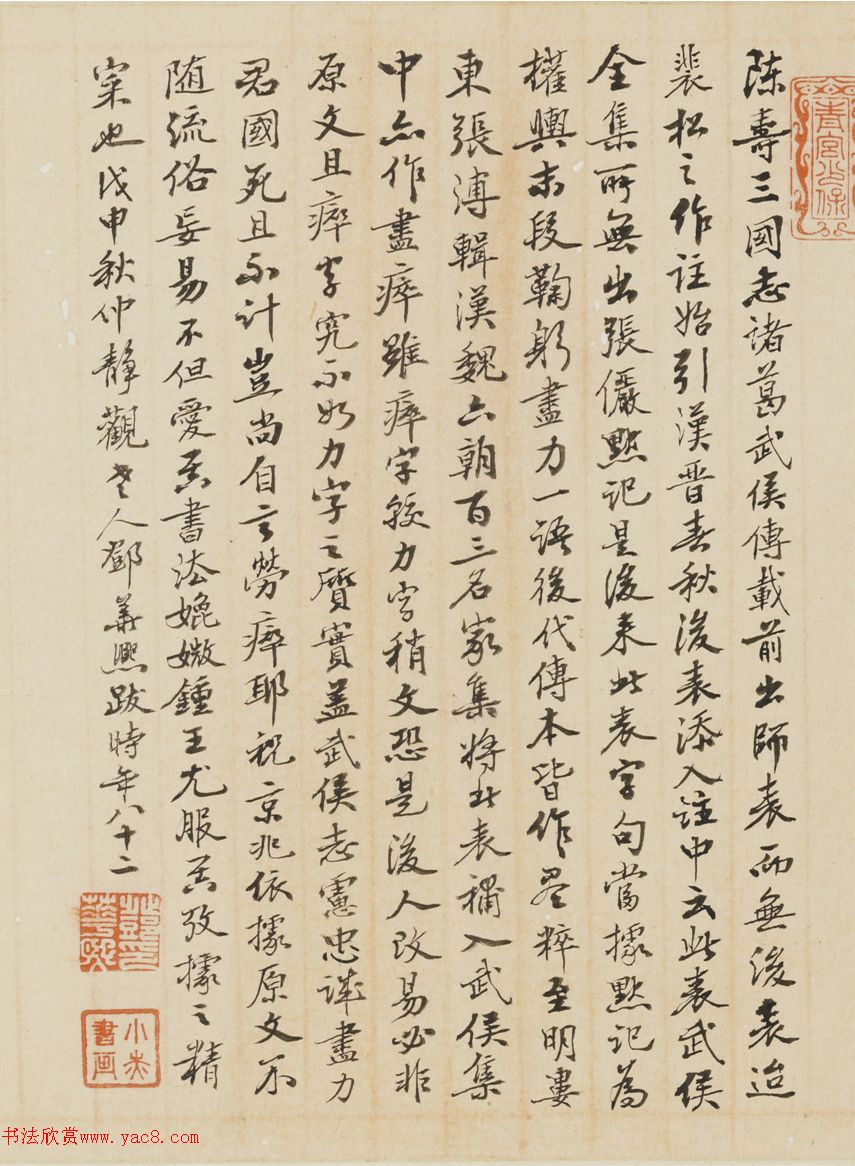 陈壽三國志諸葛武侯傳載前出師表而無後表迨
裴松之作註始引漢晋春秋後表添入註中云此表武侯
全集所無出張儼默記是後来此表字句當據默記為
權輿末段鞠躬盡力一語後代傳本皆作盡粹至明婁
東張溥輯漢魏六朝百三名家集將此表補入武侯集
中亦作盡瘁雖瘁字較力字稍文恐是後人改易必非
原文且瘁字究不如力字之質實盖武侯志慮忠誠盡力
君國死且不計豈尚自言勞瘁耶祝京兆依據原文不
随流俗妄易不但愛其書法媲媺鍾王尤服其攷據之精
案也戊申秋仲靜觀老人鄧華熙跋時年八十二
青宮少保
鄧華熙
書画
书法欣赏www.yac8.com